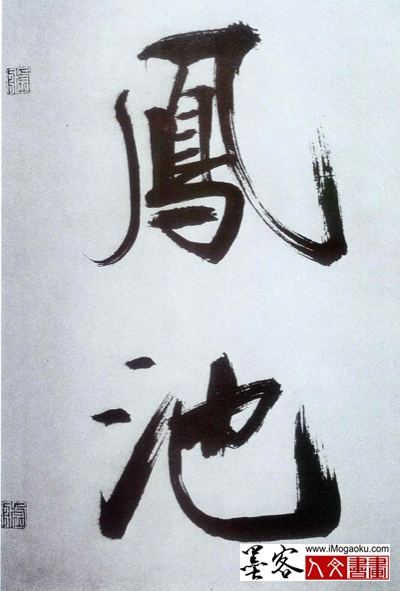 鳳
池
墨客
www.iMogaoku.com
人文書畫